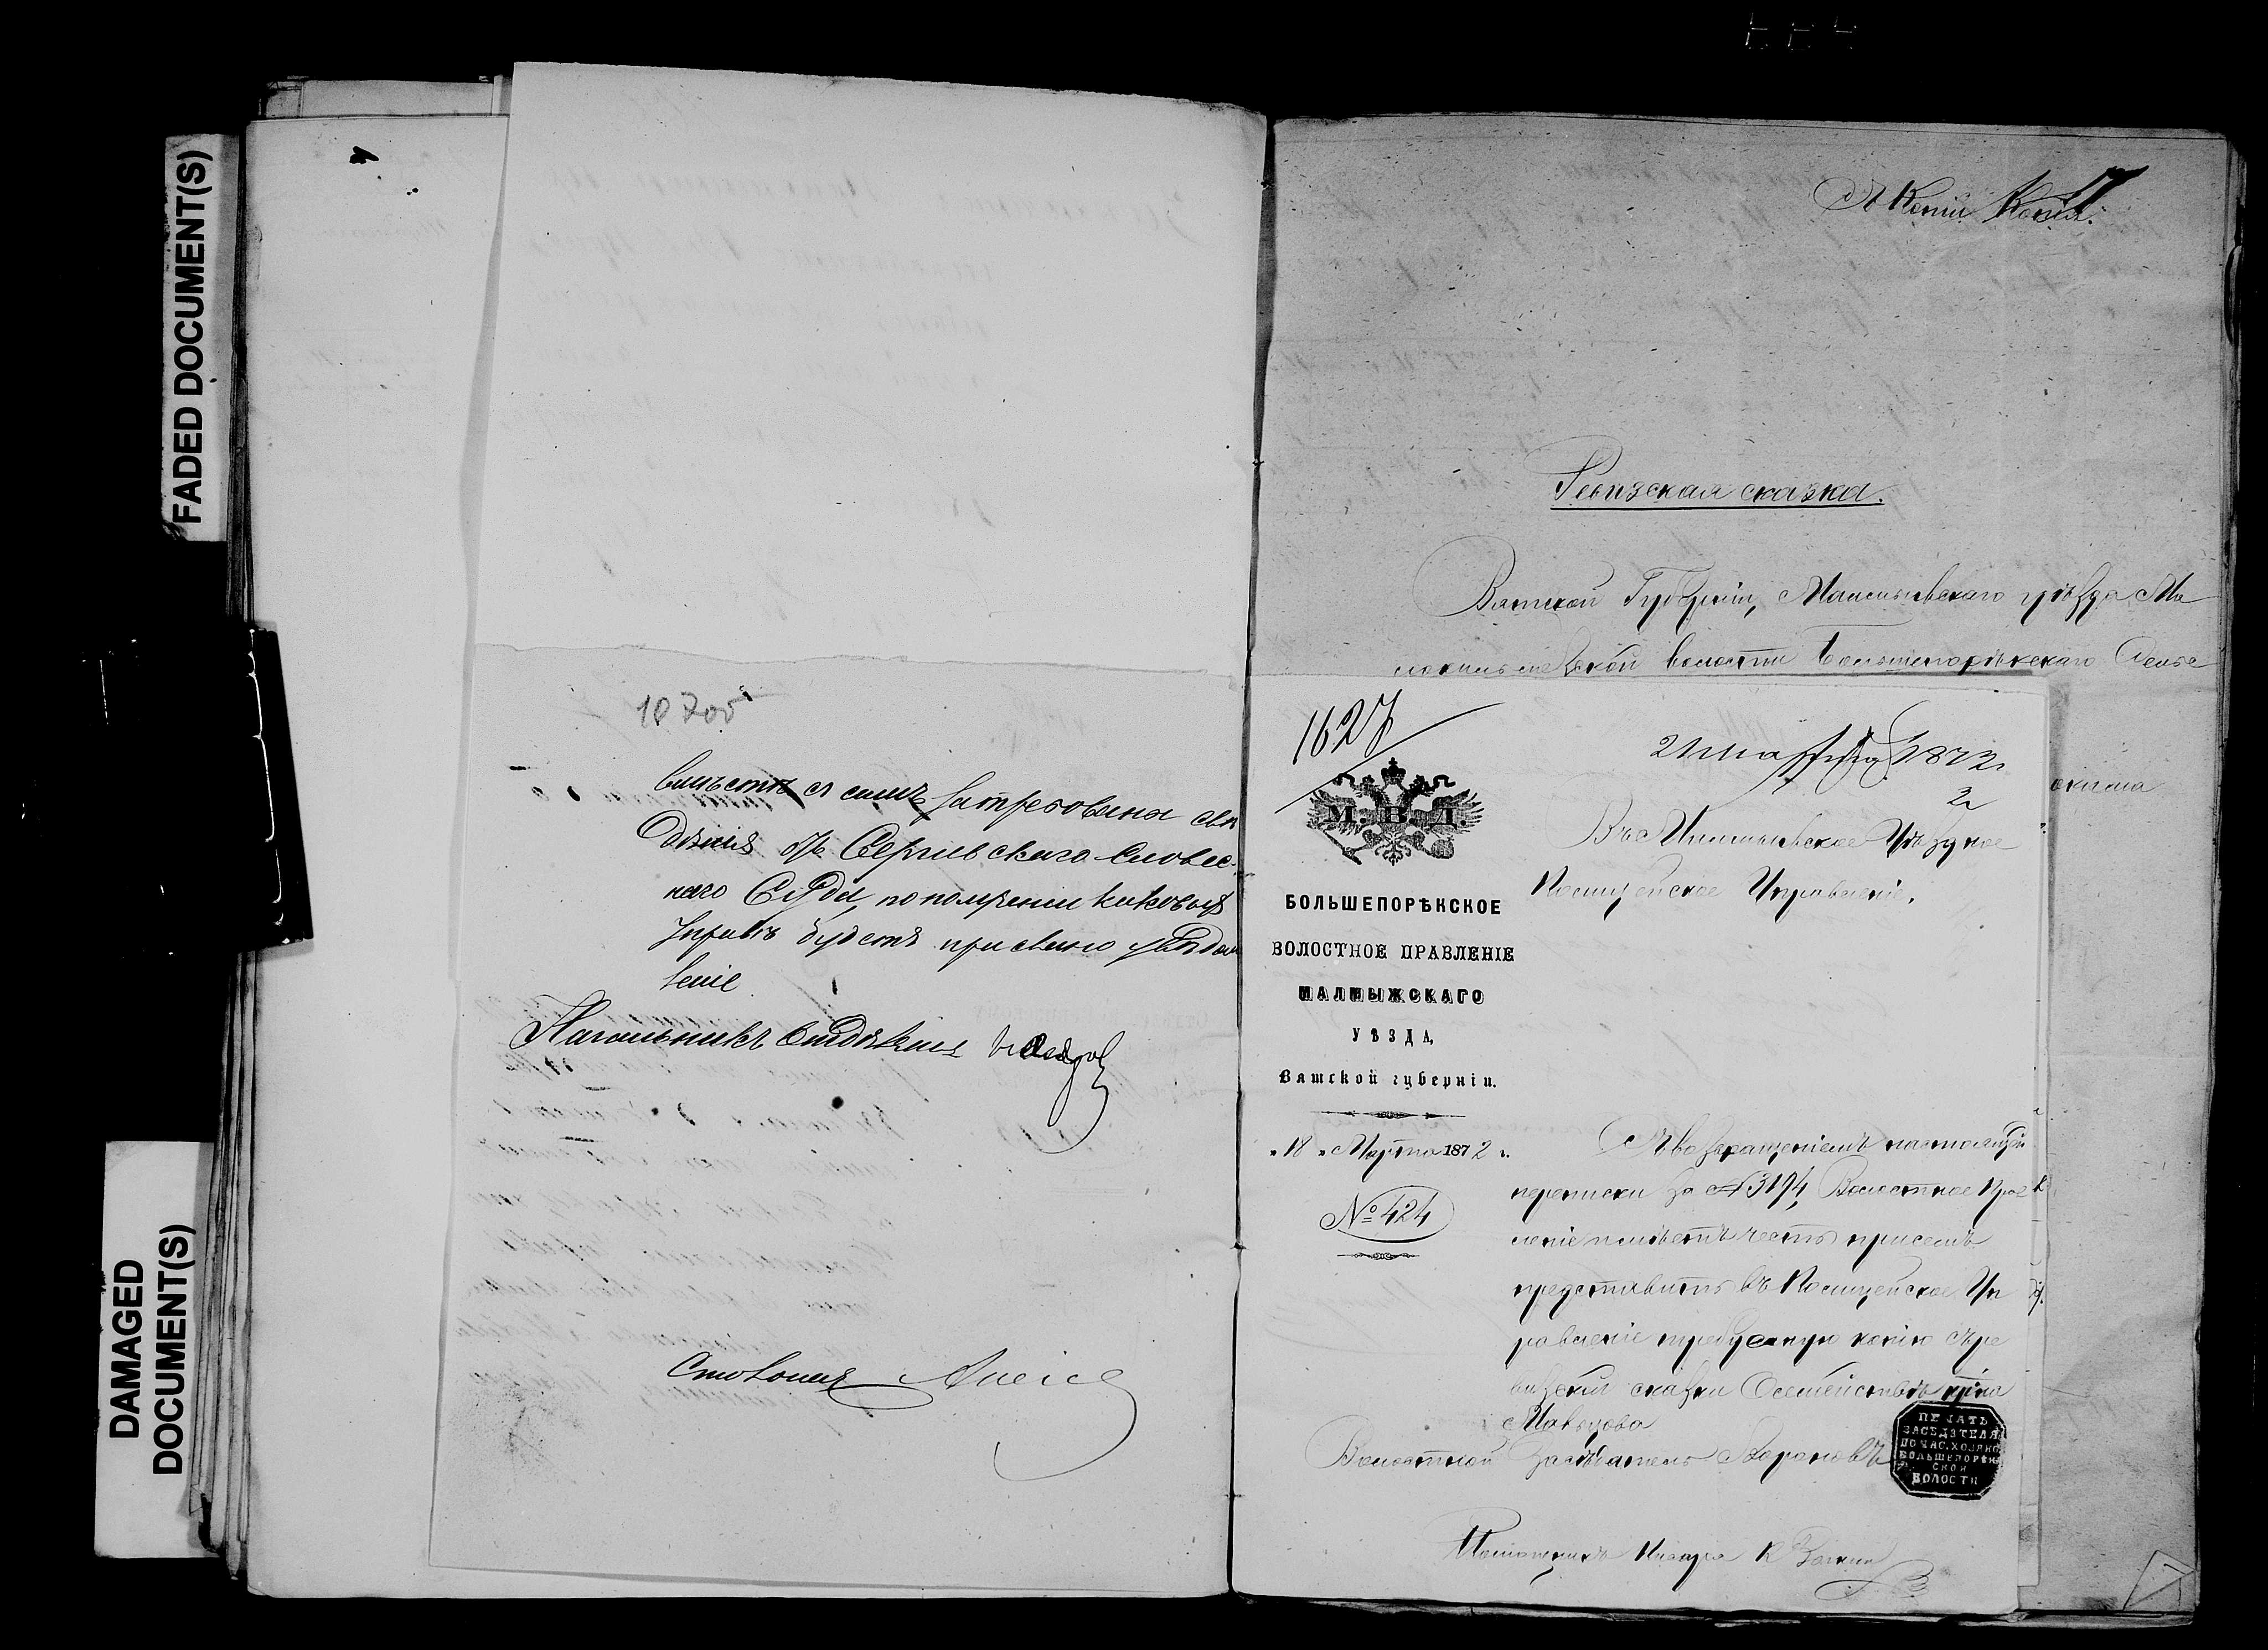 FADED DOCUMENT(S)
DAMAGED
DOCUMENT(S)
вмѣстѣ съ симъ затребованы свѣ
дѣнія отъ Сергіевскаго Словес-
наго Суда, по полученіи каковыхъ
Управѣ будетъ прислано увѣдом
леніе
Начальникъ Отдѣленія
Съ Копіи Копія.
17
Ревизская сказка.
Вятской Губерніи, Малмыжскаго уѣзда Ма
волости Большепорѣкскаго Сельс
1627
21 марта 1872 г.
М. В. Д.
БОЛЬШЕПОРѢКСКОЕ
ВОЛОСТНОЕ ПРАВЛЕНІЕ
МАЛМЫЖСКАГО
УѢЗДА,
Вятской губерніи.
„18„ Марта 1872 г.
№ 424
Уѣздное
Полицейское Управленіе.
Съ возвращеніемъ настоящей
переписки за № 3194, Волостное Прав
леніе имѣетъ честь при семъ
представить въ Полицейское Уп
равленіе требуемую копію съ ре
визской сказки о семействѣ
Волостной засѣдатель
ПЕЧАТЬ
ЗАСѢДАТЕЛЯ
ПО ЧАС. ХОЗЯЙС
БОЛЬШЕПОРѢК
СКОЙ
ВОЛОСТИ
Помощникъ Писаря